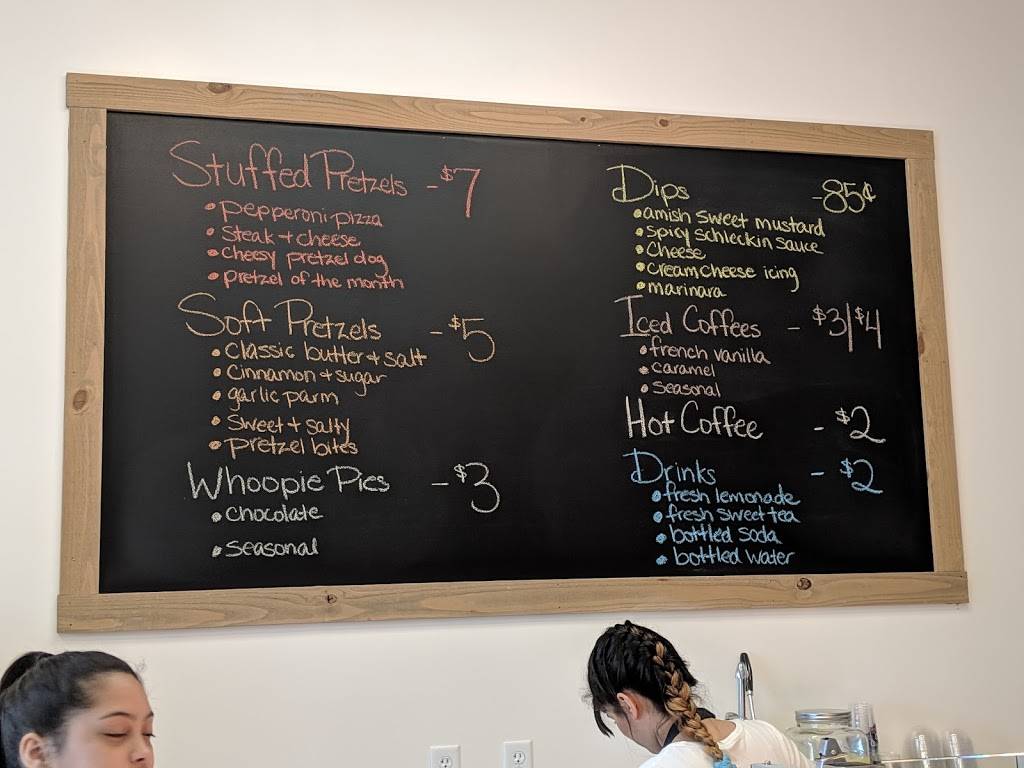 Stuffed Pretzels - $7
• pepperoni pizza
• steak + cheese
• cheesy pretzel dog
• pretzel of the month
Soft Pretzels - $5
• classic butter + salt
• cinnamon + sugar
• garlic parm
• sweet + salty
• pretzel bites
Whoopie Pies - $3
• chocolate
• seasonal
Dips -85¢
• amish sweet mustard
• spicy schleckin sauce
• cheese
• cream cheese icing
• marinara
Iced Coffees - $3/$4
• french vanilla
• caramel
• seasonal
Hot Coffee - $2
Drinks - $2
• fresh lemonade
• fresh sweet tea
• bottled soda
• bottled water